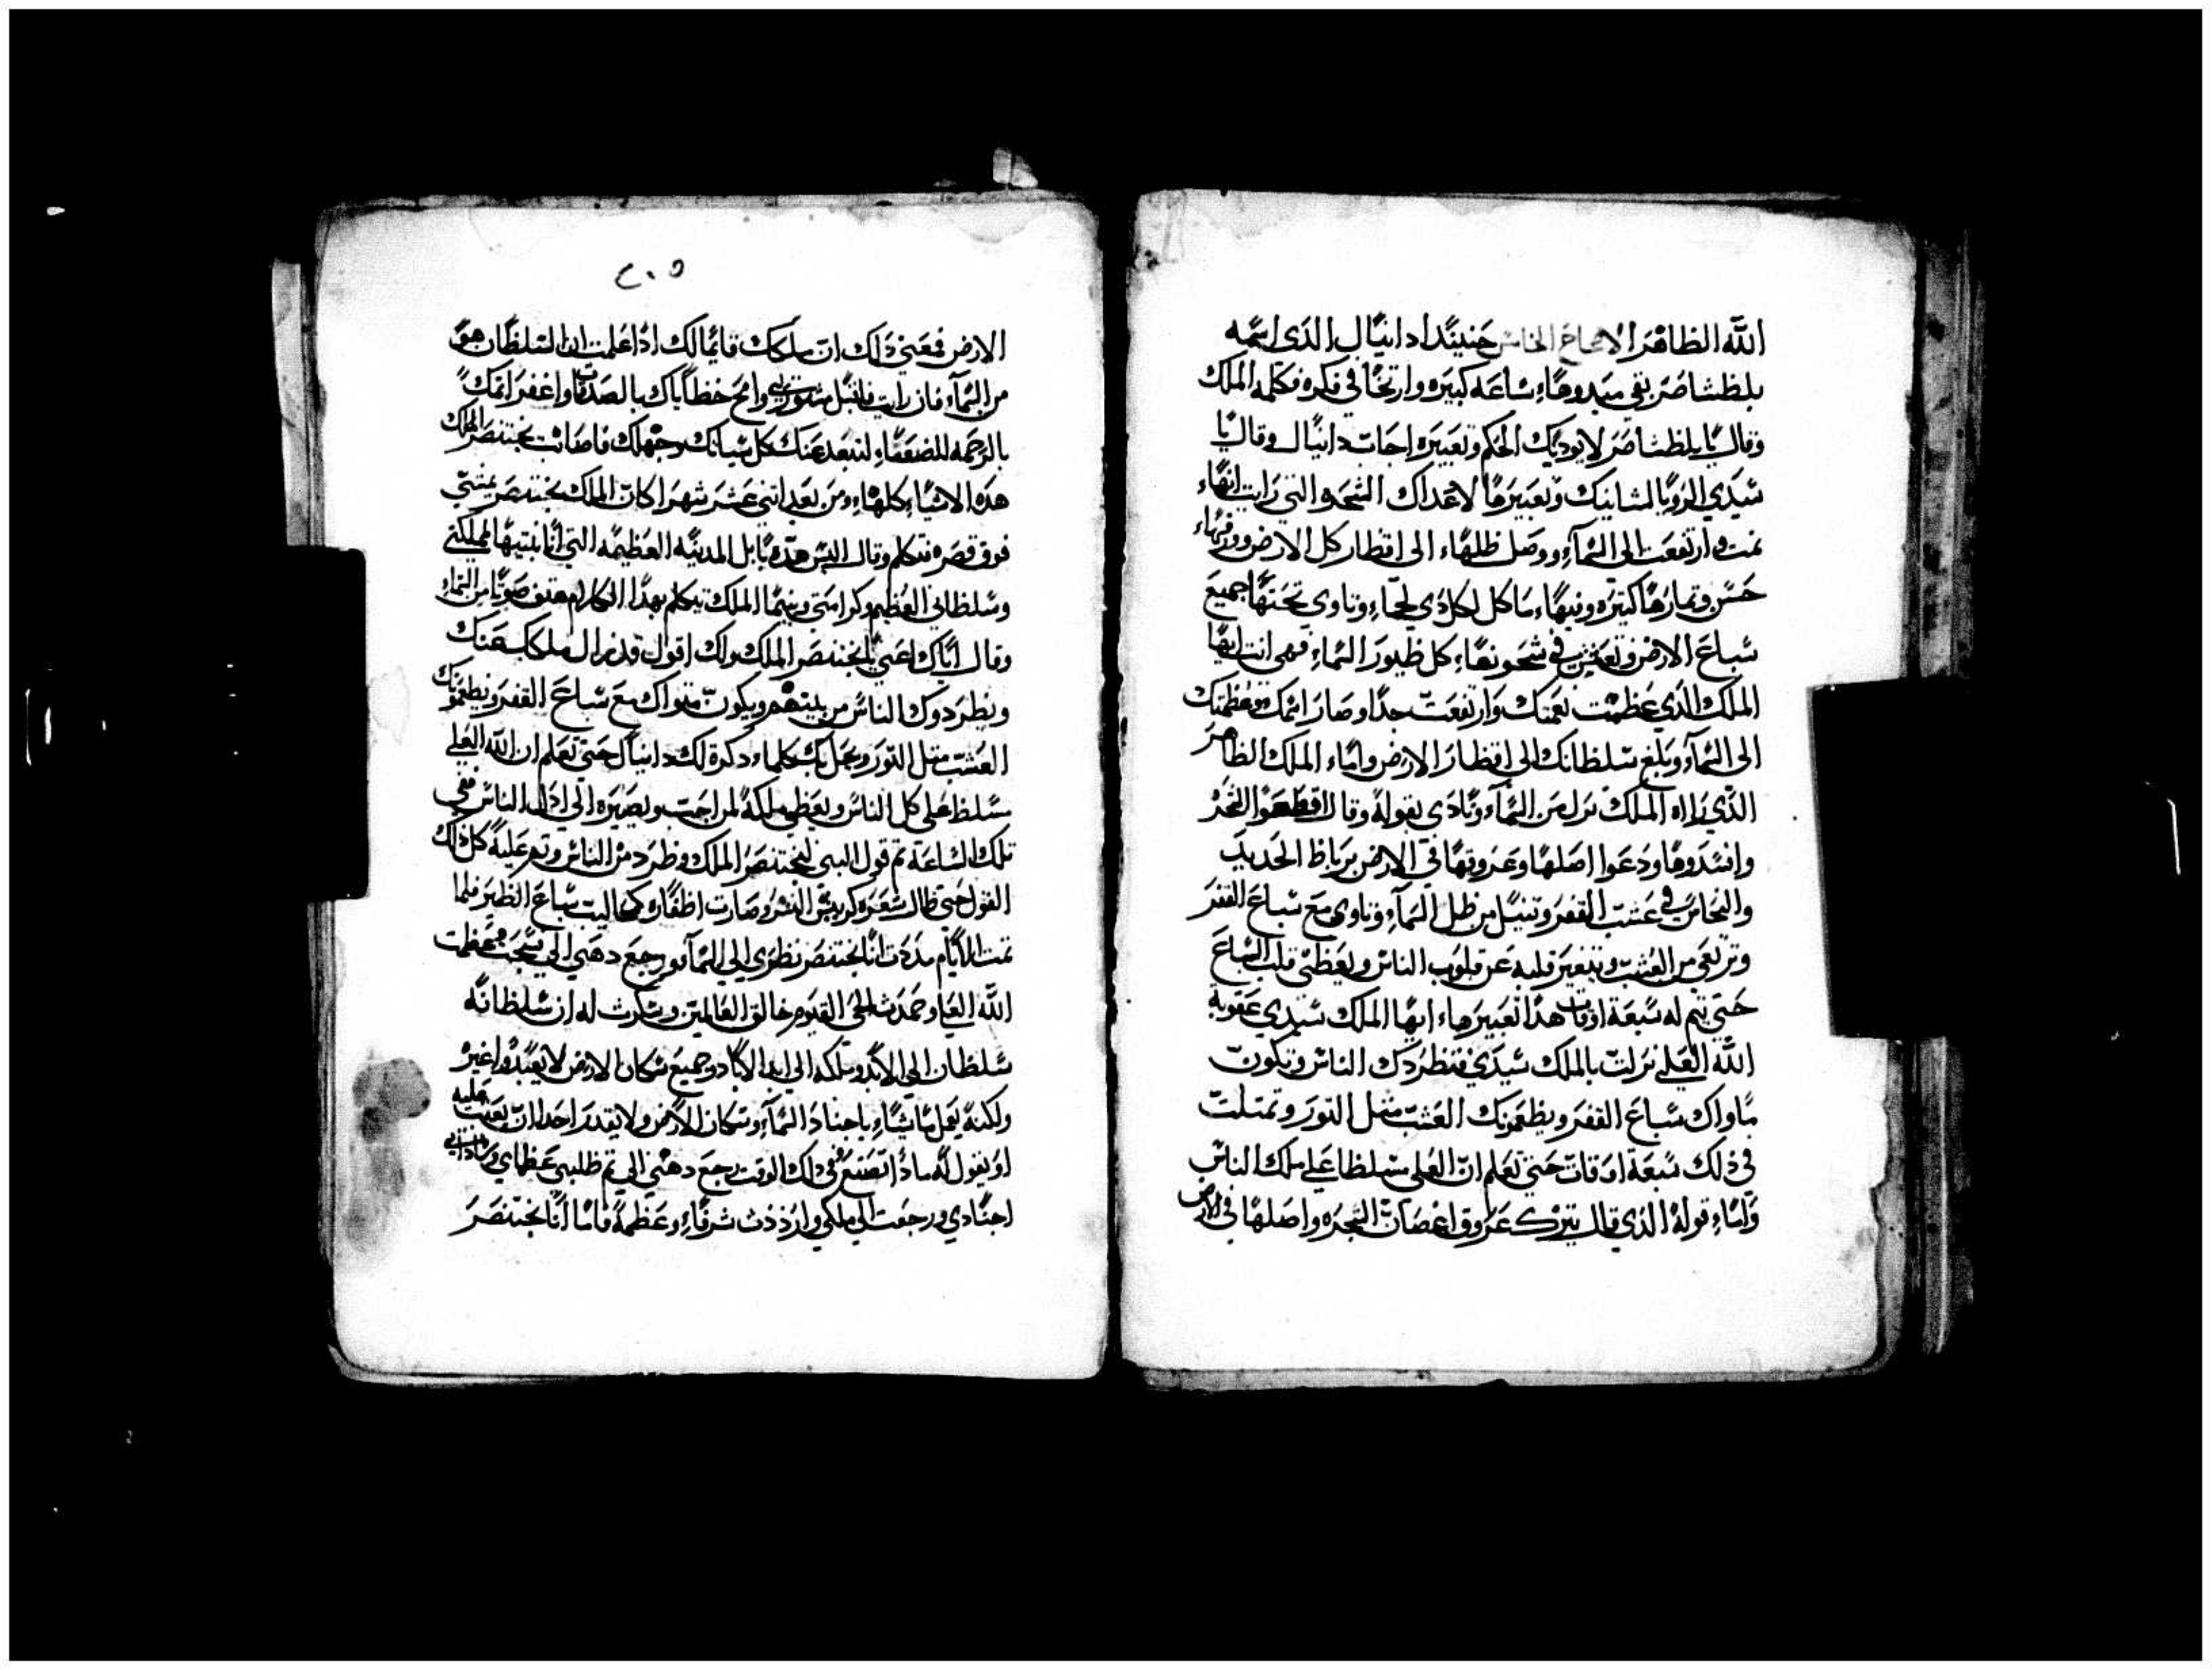 الله الظاهر الاصحاح الخامس حينيدا دانيال الذي اسمه
بلطشاصر بقي مبدوها ساعه كبيره وارتخا في فكره فكلمه الملك
وقال يا بلطشاصر لا يوديك الحلم وتعبيره اجاب دانيال وقال يا
سيدي الرويا لشانيك وتعبيرها لاعداك الشجره التي رايت انها
نمت وارتفعت الى السماء ووصل ظلها الى اقطار كل الارض وورقها
حسن وثمارها كتيره وفيها ماكل لكل ذي لحما وتاوي تحتها جميع
سباع الارض وتعشش في شجونها كل طيور السماء فهي انت ايها
الملك الذي عظمت نعمتك وارتفعت جدا وصار اسمك وعظمتك
الى السماء وبلغ سلطانك الى اقطار الارض واما الملك الطاهر
الذي راه الملك نزل من السماء ونادى بقوله وقال اقطعوا الشجر
وافسدوها ودعوا اصلها وعروقها في الارض برباط الحديد
والنحاس في عشب القفر وتبتل من طل السماء وتاوي مع سباع القفر
وترتعي من العشب ويتغير قلبه عن قلوب الناس ويعطى قلب السباع
حتى يتم له سبعة اوقات هذا تعبيرها ايها الملك سيدي عقوبة
الله العلي نزلت بالملك سيدي فتطردك الناس وتكون
ماواك سباع القفر ويطعمونك العشب مثل الثور وتمتلت
في ذلك سبعة اوقات حتى تعلم ان العلي سلطا على ملك الناس
واما قوله الذي قال يترك عروق اغصان الشجره واصلها في الارض
٢٠٥
الارض فعنى ذلك ان ملكك قايما لك اذا علمت ان السلطان هو
من السماء فان رايت فاقبل مشورتي وامح خطاياك بالصدقات واغفر اتمك
بالرحمه للضعفاء لتبعد عنك كل سياتك وجهلك فاصابت بختنصر الملك
هذه الاشياء كلها ومن بعد اتني عشر شهرا كان الملك بختنصر يمشي
فوق قصره فتكلم وقال اليس هذه بابل المدينه العظيمه التي انا بنيتها لمملكتي
وسلطاني العظيم وكرامتي وبينما الملك يتكلم بهذا الكلام هتف صوتا من السماء
وقال اياك اعني يا بختنصر الملك ولك اقول قد زال ملكك عنك
ويطردوك الناس من بينهم ويكون ماواك مع سباع القفر ويطعموك
العشب متل التور ويحل بك كلما ذكره لك دانيال حتى تعلم ان الله العلي
سلط على كل الناس ويعطي ملكه لمن احب ويصيره الى اذل الناس ففي
تلك الساعة تم قول النبي لبختنصر الملك وطرد من الناس وتم عليه كل ذلك
القول حتى طال شعره كريش النسر وصارت اظفاره كمخاليب سباع الطير فلما
تمت الايام مددت انا بختنصر نظري الى السماء ورجع دهني الي فسبحت وعظمت
الله العلي وحمدت الحي القيوم خالق العالمين وشكرت له ان سلطانه
سلطان الى الابد وملكه الى ابد الاباد وجميع سكان الارض لا يعبدوا غيره
ولكنه يعمل ما يشاء باجناد السماء وسكان الارض ولا يقدر احدا ان يعيب عليه
او يقول له ماذا تصنع وفي ذلك الوقت رجع دهني الي تم طلبني عظماي
اجنادي ورجعت الى ملكي وازددت شرفا وعظمة فاما انا بختنصر